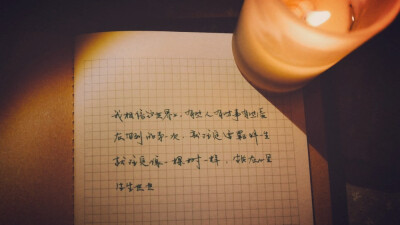 我相信这世界上，有些人有些事有些爱
在见到的第一次，就注定要羁绊一生
就注定像一棵树一样，生长在心里
生生世世